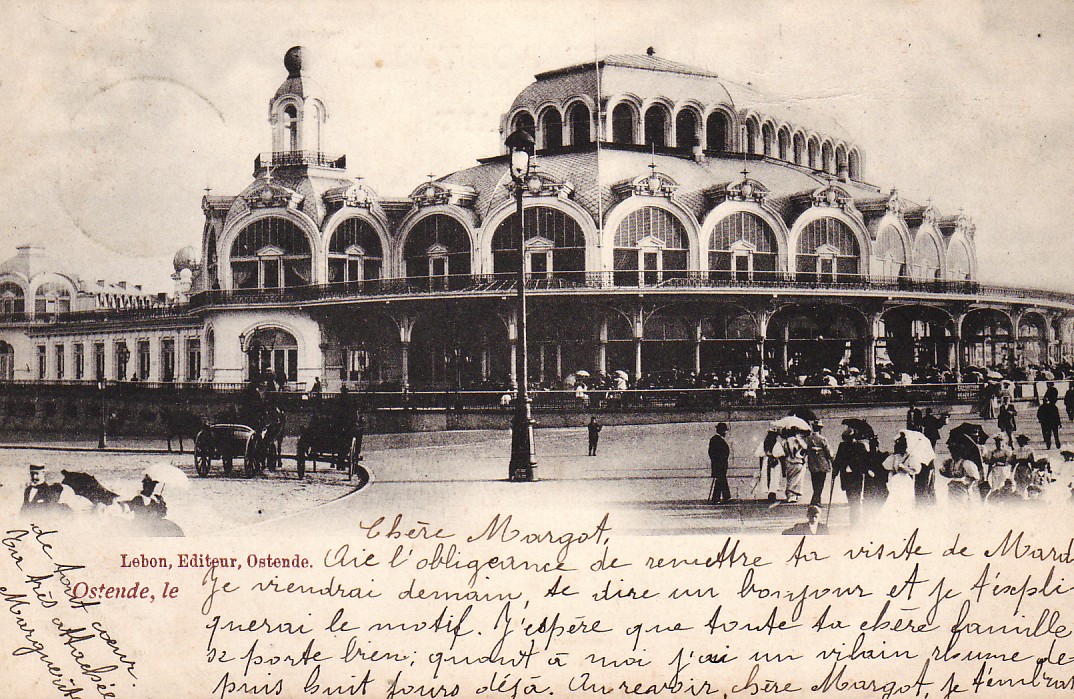 Chère Margot,
Lebon, Editeur, Ostende.
Aie l'obligeance de remettre ta visite de Mard
Ostende, le
Je viendrai demain, te dire un bonjour et je t'expli-
querai le motif. J'espère que toute ta chère famille
se porte bien; quant à moi j'ai un vilain rhume de-
puis huit jours déjà. Au revoir, chère Margot, je t'embras
de tout cœur.
Ton très attachée
Marguerite